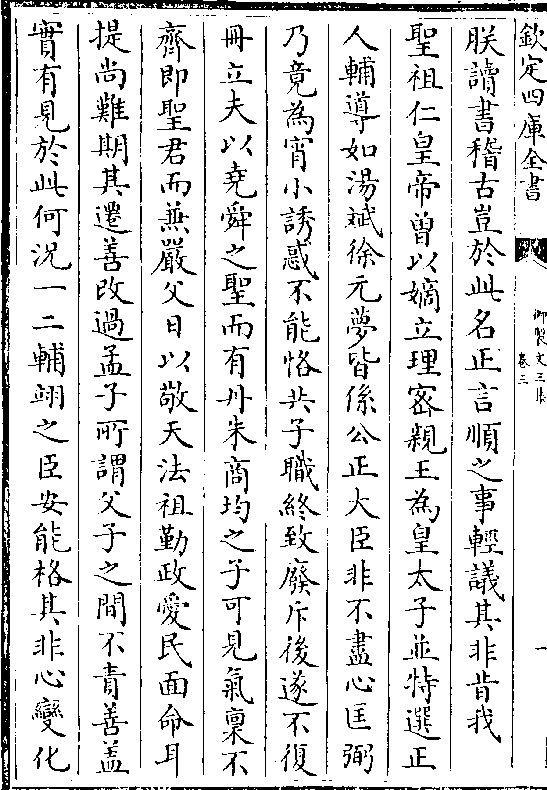 欽定四庫全書
御製文三集
卷三
一
朕讀書稽古豈於此名正言順之事輕議其非昔我
聖祖仁皇帝曾以嫡立理密親王為皇太子並特選正
人輔導如湯斌徐元夢皆係公正大臣非不盡心匡弼
乃竟為宵小誘惑不能恪共子職終致廢斥後遂不復
冊立夫以堯舜之聖而有丹朱商均之子可見氣稟不
齊即聖君而兼嚴父日以敬天法祖勤政愛民面命耳
提尚難期其遷善改過孟子所謂父子之間不責善葢
實有見於此何況一二輔翊之臣安能格其非心變化